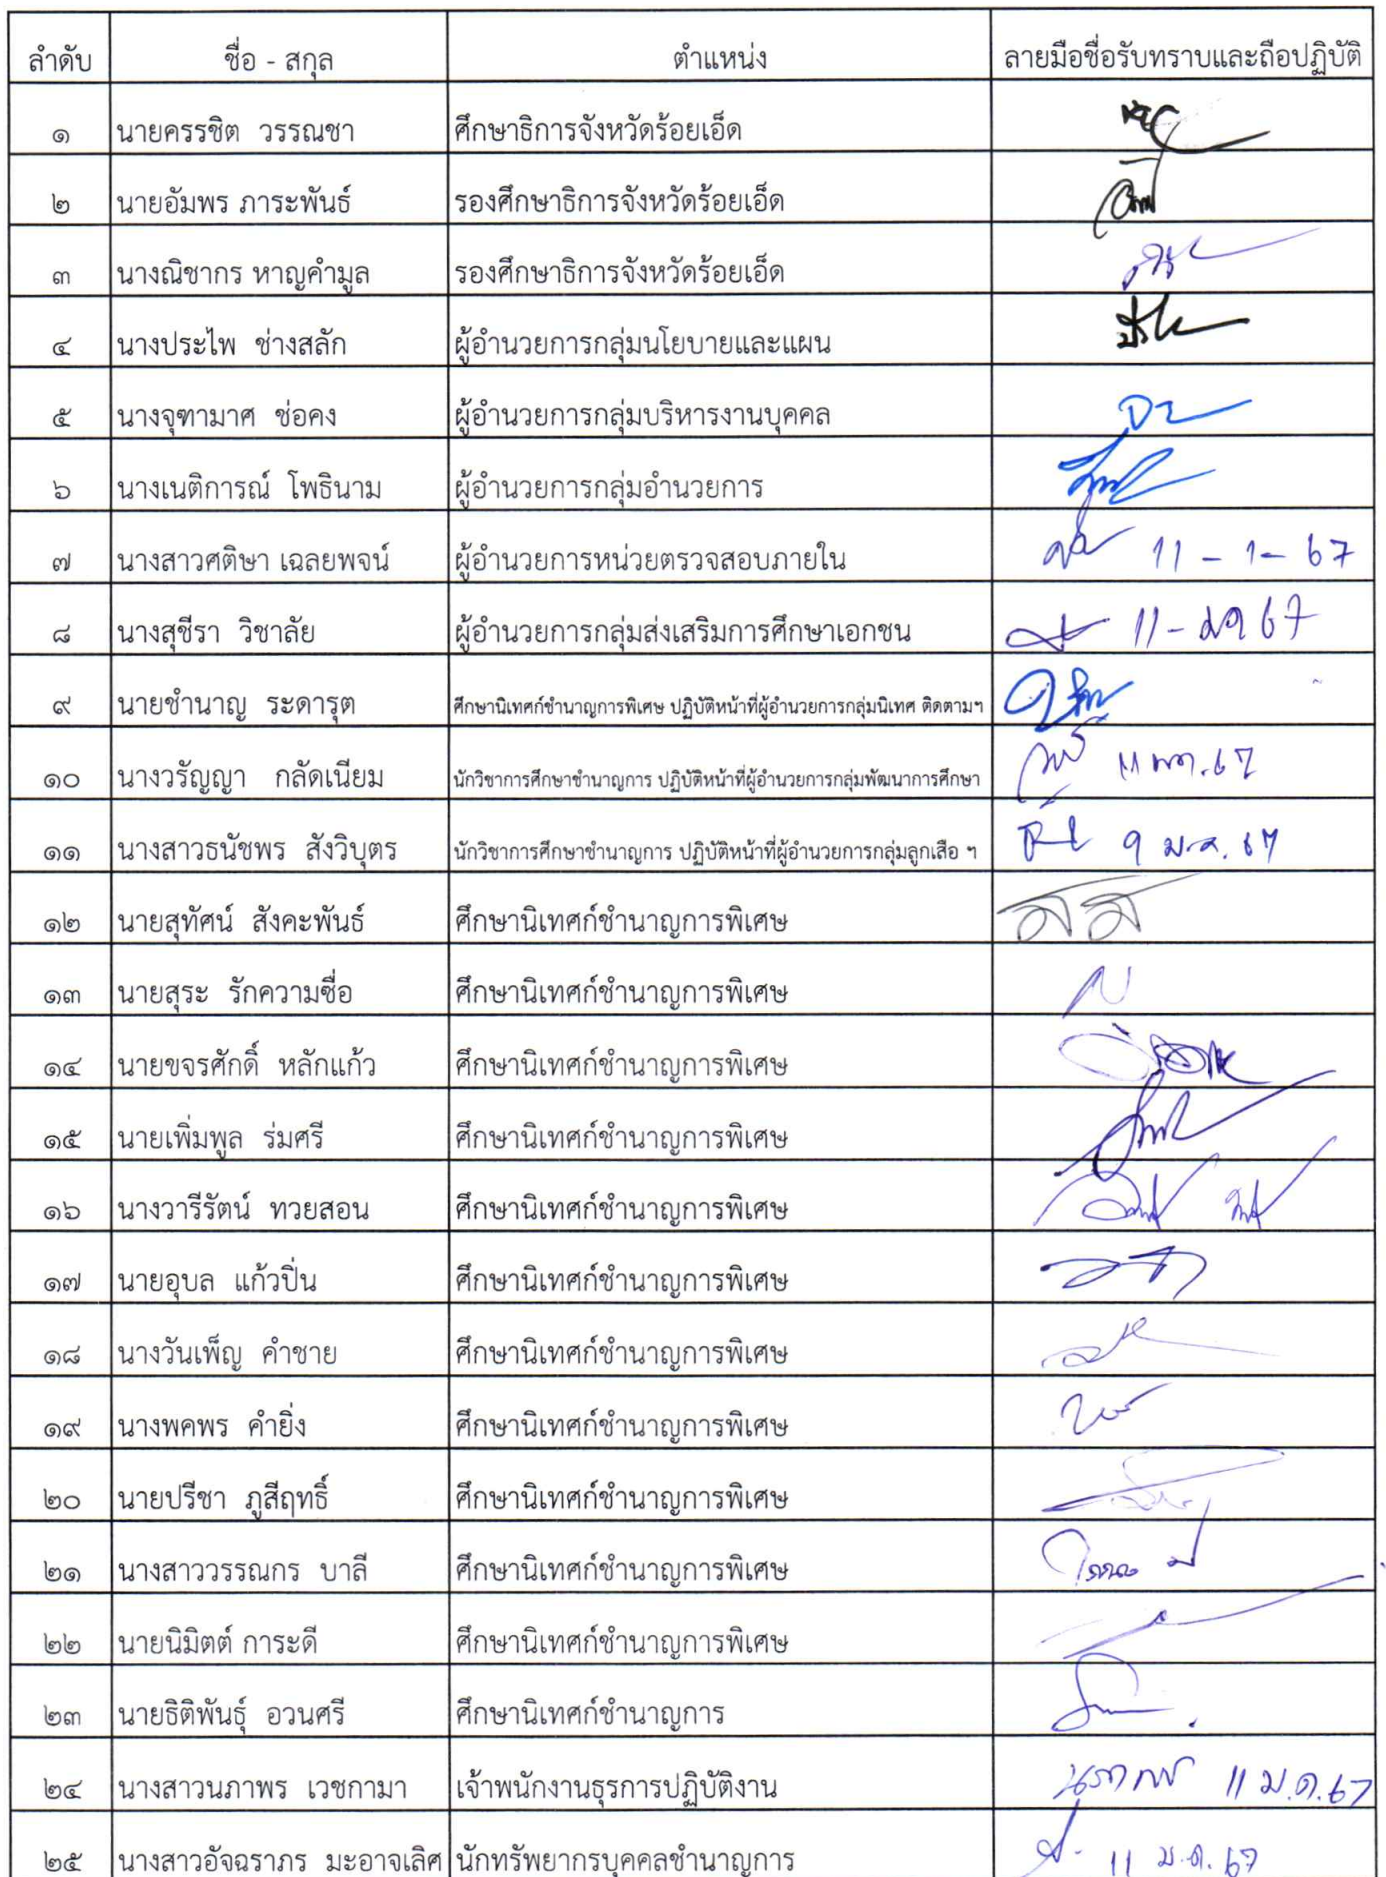 ลำดับ ชื่อ - สกุล ตำแหน่ง ลายมือชื่อรับทราบและถือปฏิบัติ
๑ นายครรชิต วรรณชา ศึกษาธิการจังหวัดร้อยเอ็ด
๒ นายอัมพร ภาระพันธ์ รองศึกษาธิการจังหวัดร้อยเอ็ด
๓ นางณิชากร หาญคำมูล รองศึกษาธิการจังหวัดร้อยเอ็ด
๔ นางประไพ ช่างสลัก ผู้อำนวยการกลุ่มนโยบายและแผน
๕ นางจุฑามาศ ช่อคง ผู้อำนวยการกลุ่มบริหารงานบุคคล
๖ นางเนติการณ์ โพธินาม ผู้อำนวยการกลุ่มอำนวยการ
๗ นางสาวศติษา เฉลยพจน์ ผู้อำนวยการหน่วยตรวจสอบภายใน 11 - 1 - 67
๘ นางสุชีรา วิชาลัย ผู้อำนวยการกลุ่มส่งเสริมการศึกษาเอกชน 11 - มค 67
๙ นายชำนาญ ระดารุต ศึกษานิเทศก์ชำนาญการพิเศษ ปฏิบัติหน้าที่ผู้อำนวยการกลุ่มนิเทศ ติดตามฯ
๑๐ นางวรัญญา กลัดเนียม นักวิชาการศึกษาชำนาญการ ปฏิบัติหน้าที่ผู้อำนวยการกลุ่มพัฒนาการศึกษา
๑๑ นางสาวธนัชพร สังวิบุตร นักวิชาการศึกษาชำนาญการ ปฏิบัติหน้าที่ผู้อำนวยการกลุ่มลูกเสือ ฯ 9 ม.ค. 67
๑๒ นายสุทัศน์ สังคะพันธ์ ศึกษานิเทศก์ชำนาญการพิเศษ
๑๓ นายสุระ รักความซื่อ ศึกษานิเทศก์ชำนาญการพิเศษ
๑๔ นายขจรศักดิ์ หลักแก้ว ศึกษานิเทศก์ชำนาญการพิเศษ
๑๕ นายเพิ่มพูล ร่มศรี ศึกษานิเทศก์ชำนาญการพิเศษ
๑๖ นางวารีรัตน์ ทวยสอน ศึกษานิเทศก์ชำนาญการพิเศษ
๑๗ นายอุบล แก้วปิ่น ศึกษานิเทศก์ชำนาญการพิเศษ
๑๘ นางวันเพ็ญ คำชาย ศึกษานิเทศก์ชำนาญการพิเศษ
๑๙ นางพคพร คำยิ่ง ศึกษานิเทศก์ชำนาญการพิเศษ
๒๐ นายปรีชา ภูสีฤทธิ์ ศึกษานิเทศก์ชำนาญการพิเศษ
๒๑ นางสาววรรณกร บาลี ศึกษานิเทศก์ชำนาญการพิเศษ
๒๒ นายนิมิตต์ การะดี ศึกษานิเทศก์ชำนาญการพิเศษ
๒๓ นายธิติพันธุ์ อวนศรี ศึกษานิเทศก์ชำนาญการ
๒๔ นางสาวนภาพร เวชกามา เจ้าพนักงานธุรการปฏิบัติงาน 11 ม.ค.67
๒๕ นางสาวอัจฉราภร มะอาจเลิศ นักทรัพยากรบุคคลชำนาญการ 11 ม.ค. 67